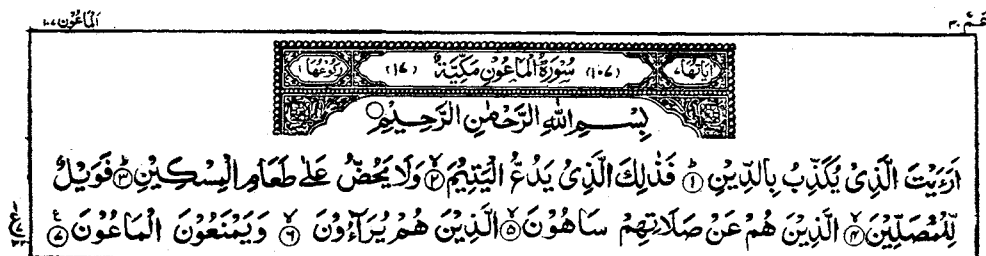 عَمَّ ٣٠ الْمَاعُوْن ١٠٧
اٰيَاتُهَا ٧ (١٠٧) سُوْرَةُ الْمَاعُوْنِ مَكِّيَّةٌ (١٧) رُكُوْعُهَا ١
بِسْمِ اللّٰهِ الرَّحْمٰنِ الرَّحِيْمِ
اَرَءَيْتَ الَّذِىْ يُكَذِّبُ بِالدِّيْنِ ① فَذٰلِكَ الَّذِىْ يَدُعُّ الْيَتِيْمَ ② وَلَا يَحُضُّ عَلٰى طَعَامِ الْمِسْكِيْنِ ③ فَوَيْلٌ
لِّلْمُصَلِّيْنَ ④ الَّذِيْنَ هُمْ عَنْ صَلَاتِهِمْ سَاهُوْنَ ⑤ الَّذِيْنَ هُمْ يُرَآءُوْنَ ⑥ وَيَمْنَعُوْنَ الْمَاعُوْنَ ⑦